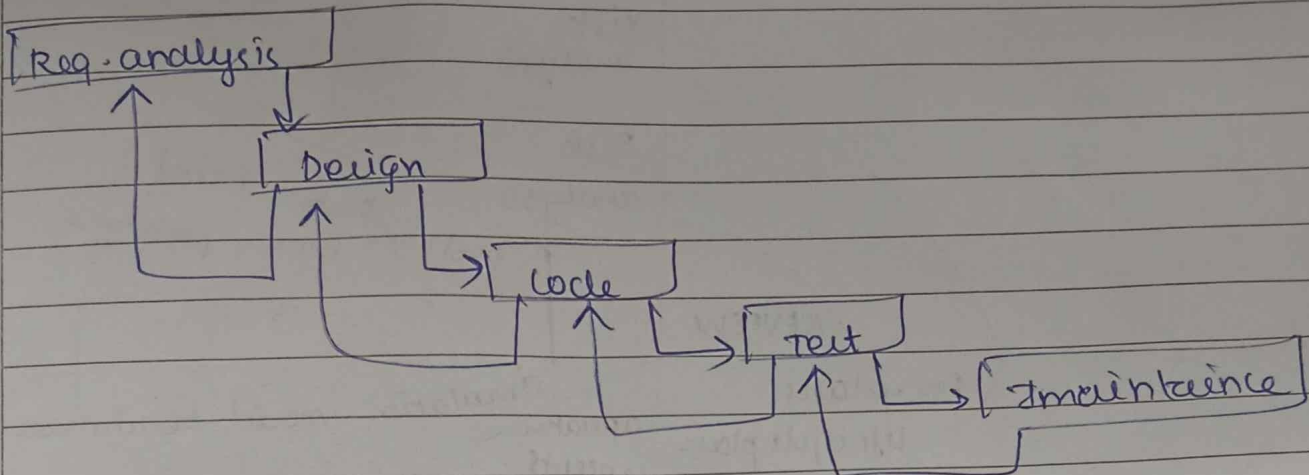 Req. analysis
Design
Code
Test
Imaintaince